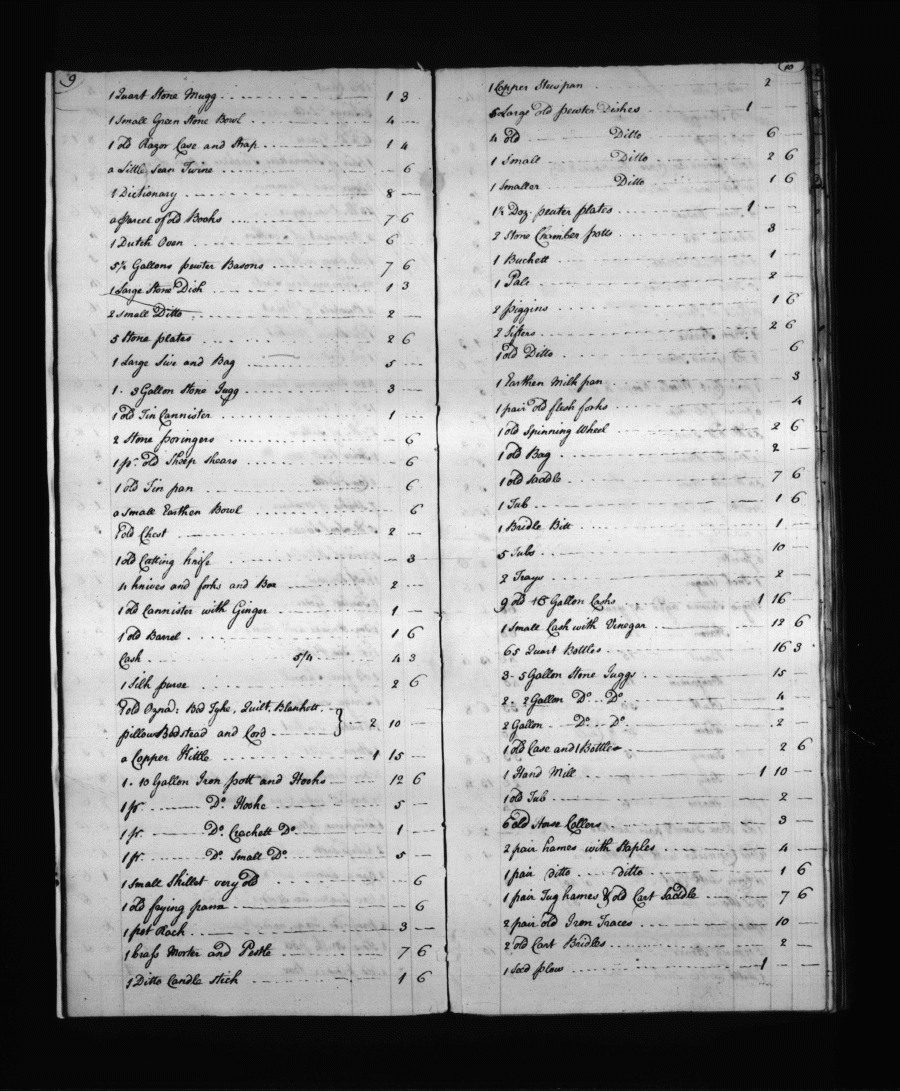 9
1 Quart Stone Mugg 1 3
1 Small Green Stone Bowl 4 —
1 old Razor Case and Strap 1 4
a Little Sean Twine — 6
1 Dictionary 8 —
a parcel of old Books 7 6
1 Dutch Oven 6 —
5½ Gallons pewter Basons 7 6
1 Large Stone Dish 1 3
2 small Ditto 2 —
5 Stone plates 2 6
1 Large Sive and Bag 5 —
1. 3 Gallon Stone Jugg 3 —
1 old Tin Cannister 1 —
2 Stone poringers — 6
1 pr. old Sheep Shears — 6
1 old Tin pan 6
a small Earthen Bowl 6
1 old Chest 2 —
1 old Cutting knife — 3
4 knives and forks and Box 2 —
1 old Cannister with Ginger 1 —
1 old Barrel 1 6
Cash 5/4 4 3
1 Silk purse 2 6
1 old Bed Tyke, Quilt, Blankett
pillow Bedstead and Cord } 2 10 —
a Copper Kittle 1 15 —
1. 10 Gallon Iron pott and Hooks 12 6
1 pr. Do. Hooke 5 —
1 pr. Do. Crackett Do. 1 —
1 pr. Do. Small Do. 5 —
1 small Skillet very old 6
1 old frying pann — 6
1 pot Rack 3 —
1 brass Morter and Pestle 7 6
1 Ditto Candle stick 1 6
10
1 Copper Stewpan 2
6 Large old pewter Dishes 1 — —
4 old Ditto 6 —
1 Small Ditto 2 6
1 Smaller Ditto 1 6
1½ Doz. pewter plates 1 — —
2 Stone Chamber potts 3 —
1 Buckett 1 —
1 Pale 2 —
2 piggins 1 6
2 Sifters 2 6
1 old Ditto 6
1 Earthen Milk pan — 3
1 pair old flesh forks — 4
1 old Spinning Wheel 2 6
1 old Bag 2 —
1 old Saddle 7 6
1 Tub 1 6
1 Bridle Bitt 1 —
5 Tubs 10 —
2 Trays 2 —
9 old Gallon Casks 1 16 —
1 Small Cask with Vinegar 12 6
65 Quart Bottles 16 3
3. 5 Gallon Stone Juggs 15 —
2. 2 Gallon Do. Do. 4 —
2 Gallon Do. Do. 2 —
1 old Case and 1 Bottle 2 6
1 Hand Mill 1 10 —
1 old Tub 2 —
6 old Horse Collers 3 —
2 pair hames with Staples 4 —
1 pair ditto ditto 1 6
1 pair Tug hames & old Cart Saddle 7 6
2 pair old Iron Traces 10 —
2 old Cart Bridles 2 —
1 Seed plow 1 — —